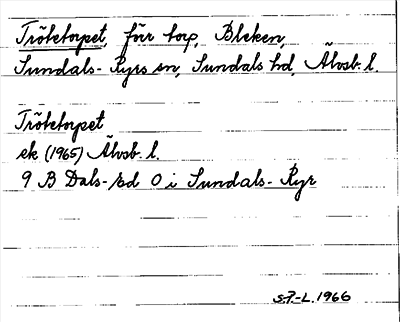 Trötetorpet, förr torp, Bleken,
Sundals-Ryrs sn, Sundals hd, Älvsb. l.
Trötetorpet
ek (1965) Älvsb. l.
9 B Dals-Ed O i Sundals-Ryr
S.P.-L. 1966